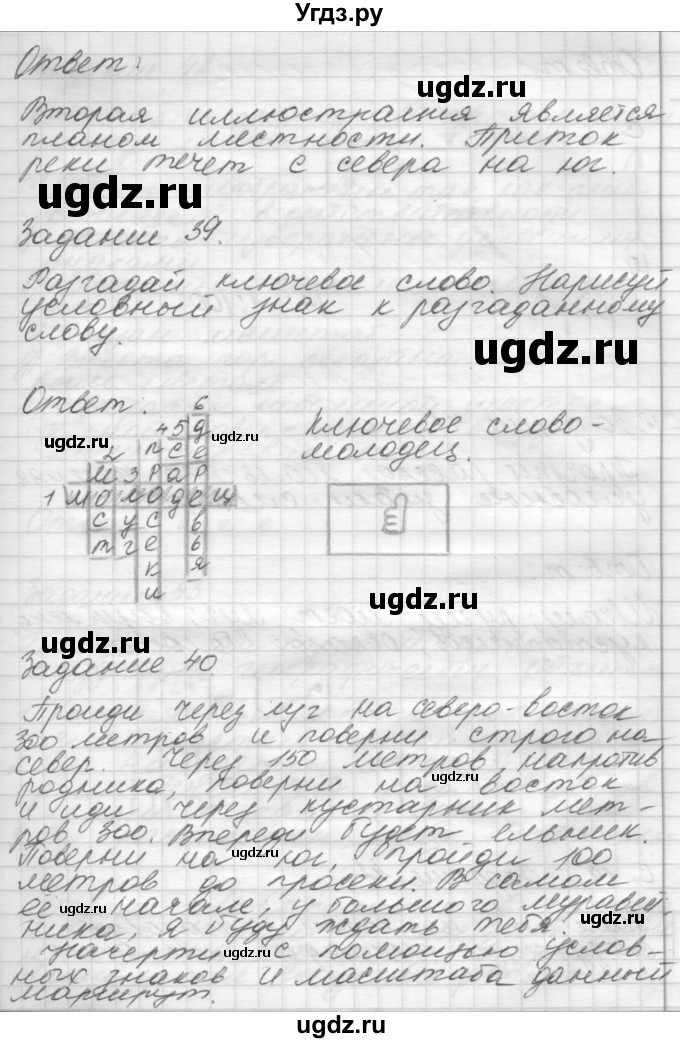 Угдз.ру
Ответ:
Вторая иллюстрация является
планом местности. Приток
реки течет с севера на юг.
ugdz.ru
ugdz.ru
Задание 39.
Разгадай ключевое слово. Нарисуй
условный знак к разгаданному
слову.
ugdz.ru
Ответ:
6
4 5 д
ugdz.ru
2 п с е
м з р а р
1 м о л о д е ц
с у с в
т г е ь
к я
и
Ключевое слово-
молодец.
ugdz.ru
ugdz.ru
ugdz.ru
Задание 40.
Пройди через луг на северо-восток
300 метров и поверни строго на
север. Через 150 метров, напротив
родника, поверни на восток
и иди через кустарник мет-
ров 300. Впереди будет ельник.
Поверни на юг, пройди 100
метров до просеки. В самом
её начале, у большого муравей-
ника, я буду ждать тебя.
Начерти с помощью услов-
ных знаков и масштаба данный
маршрут.
ugdz.ru
ugdz.ru
ugdz.ru
ugdz.ru
ugdz.ru
ugdz.ru